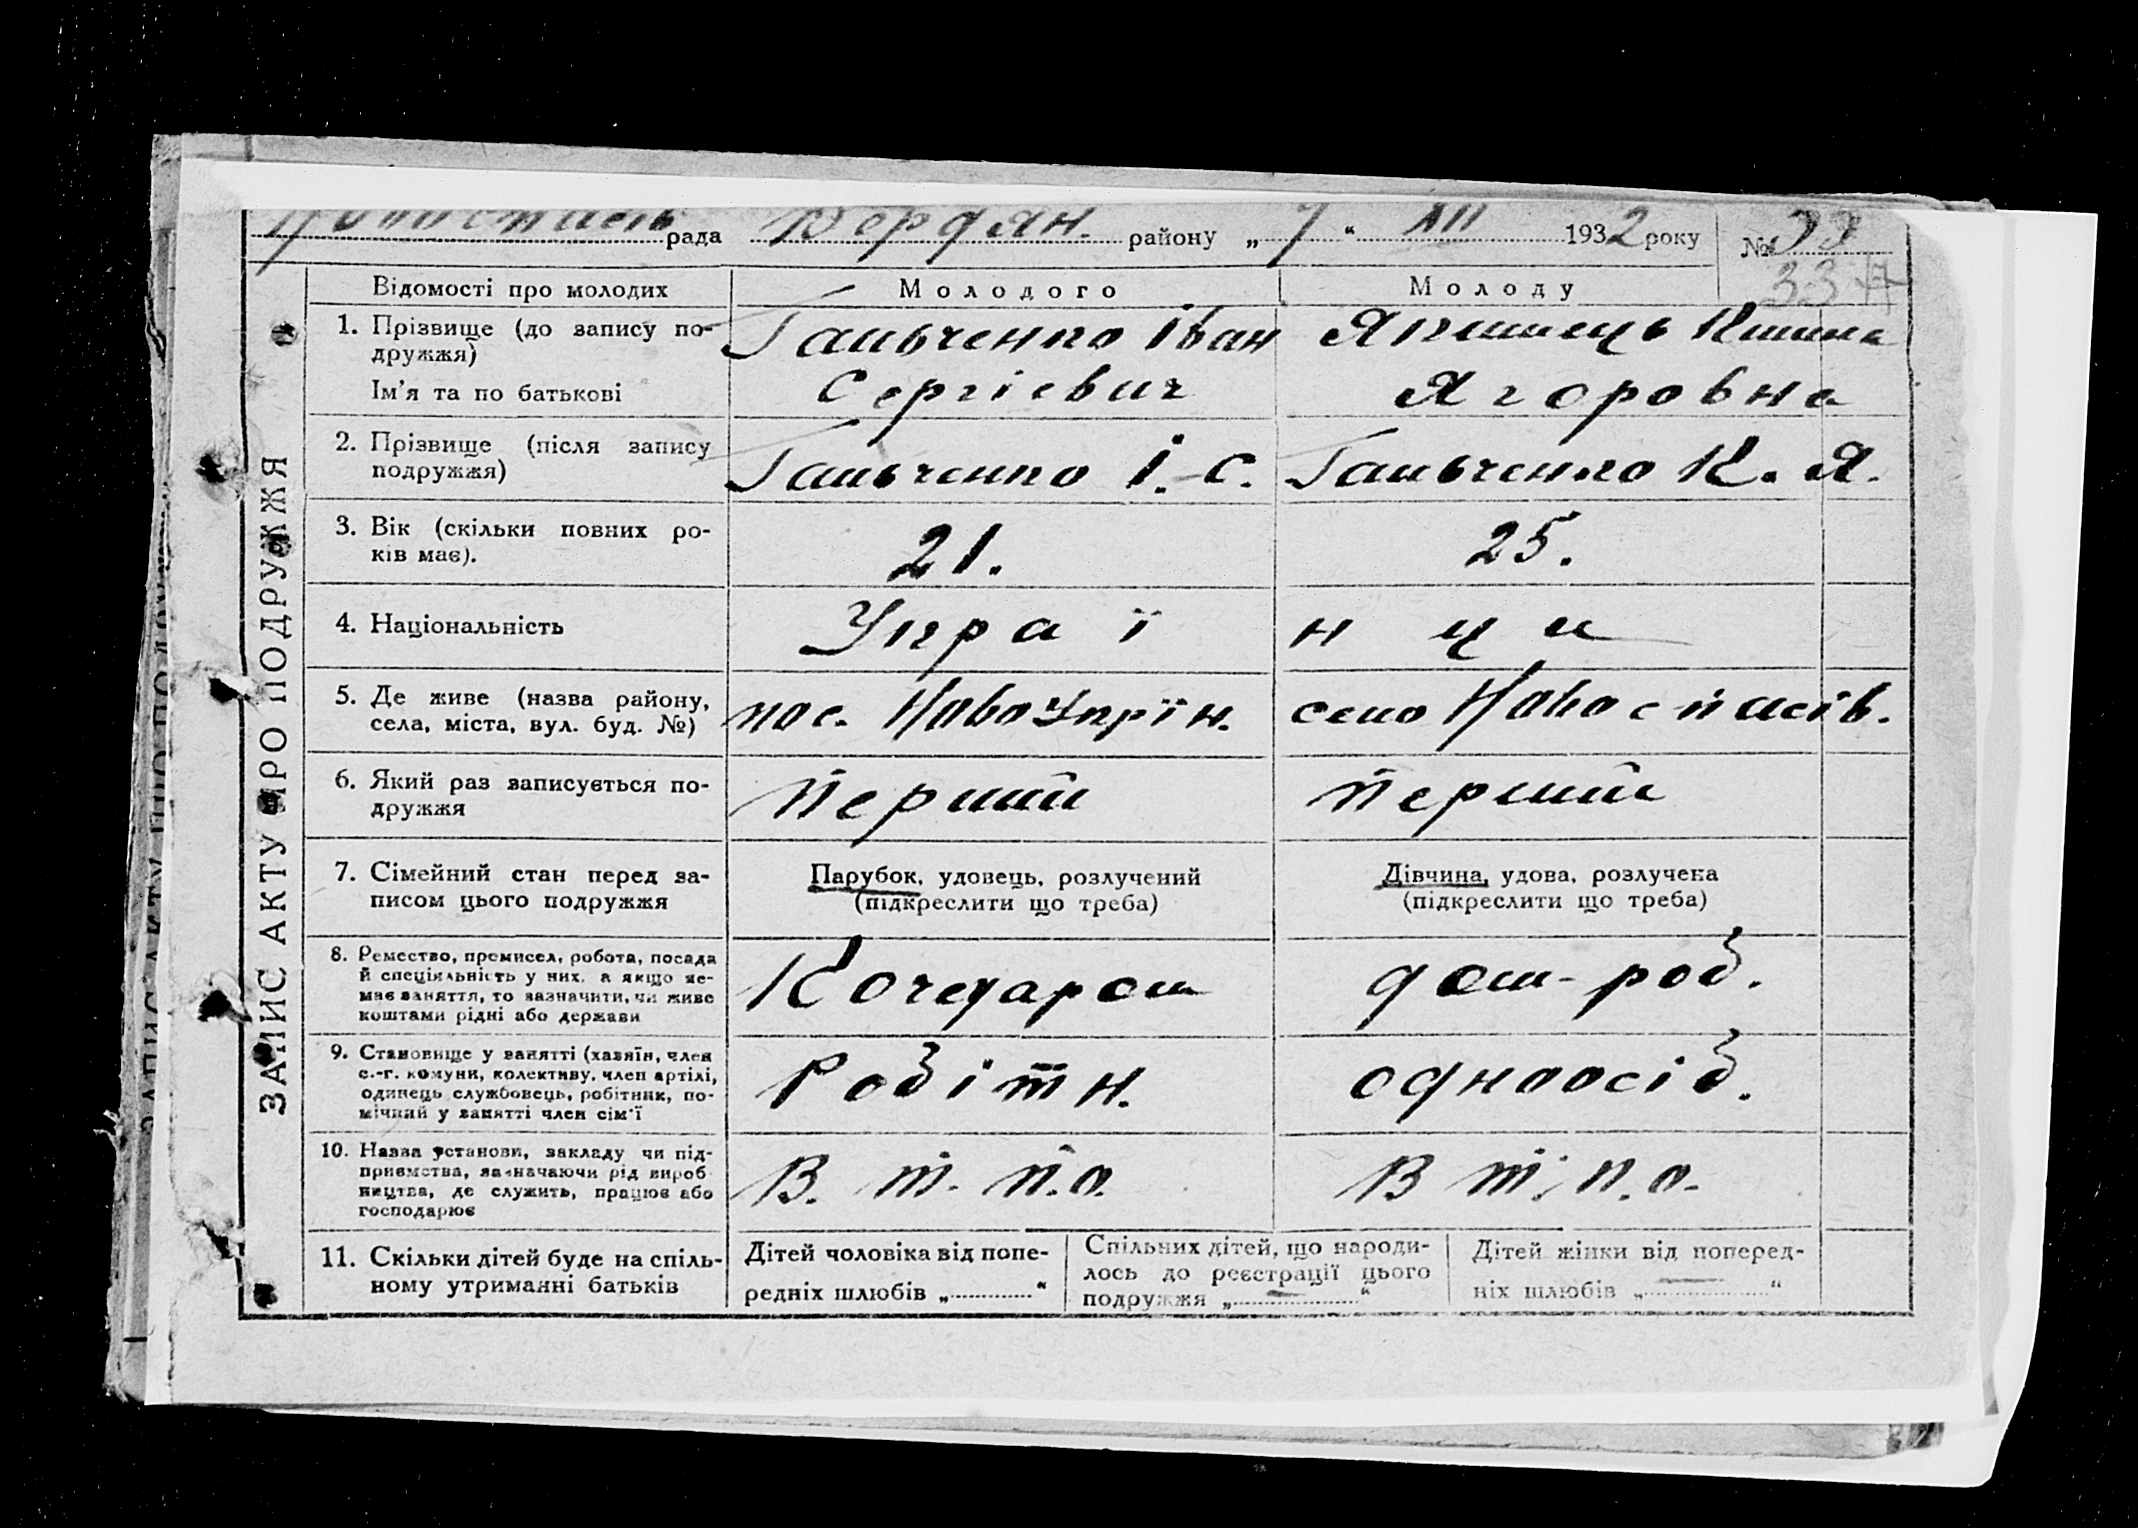 Новоспасів рада Бердян. району „ 7 “ XII 1932 року № 33
337
ЗАПИС АКТУ ПРО ПОДРУЖЖЯ
Відомості про молодих Молодого Молоду
1. Прізвище (до запису по-
дружжя)
Ім'я та по батькові
Гальченко Іван
Сергієвич
Якимець Килина
Ягоровна
2. Прізвище (після запису
подружжя)
Гальченко І. С.
Гальченко К. Я.
3. Вік (скільки повних ро-
ків має).
21.
25.
4. Національність
Украї
нци
5. Де живе (назва району,
села, міста, вул. буд. №)
пос. НовоУкрїн.
село Новоспасів.
6. Який раз записується по-
дружжя
Перший
Перший
7. Сімейний стан перед за-
писом цього подружжя
Парубок, удовець, розлучений
(підкреслити що треба)
Дівчина, удова, розлучека
(підкреслити що треба)
8. Ремество, премисел, робота, посада
й спеціяльність у них, а якщо не-
має заняття, то зазначити, чи живе
коштами рідні або держави
Кочегаром
дом-роб.
9. Становище у занятті (хазяїн, член
с.-г. комуни, колективу, член артілі,
одинець службовець, робітник, по-
мічний у занятті член сім'ї
Робітн.
одноосіб.
10. Назва установи, закладу чи під-
приємства, зазначаючи рід вироб-
ництва, де служить, працює або
господарює
В. т. п.о.
В т. п.о.
11. Скільки дітей буде на спіль-
ному утриманні батьків
Дітей чоловіка від попе-
редніх шлюбів „ “
Спільних дітей, що народи-
лось до реєстрації цього
подружжя „ — “
Дітей жінки від поперед-
ніх шлюбів „ — “